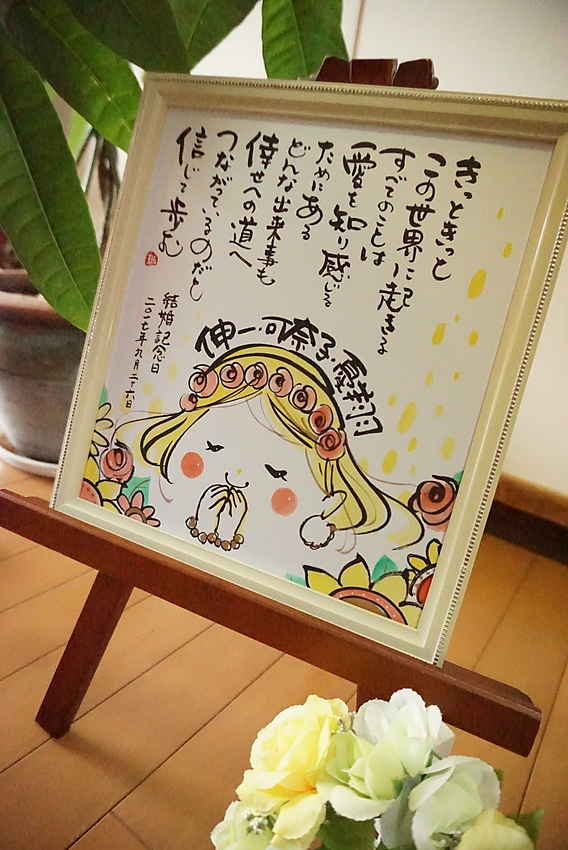 きっときっと
この世界に起きる
すべてのことは
愛を知り感じる
ためにある
どんな出来事も
倖せへの道へ
つながっているのだと
信じて歩む
結婚記念日
二〇一七年九月二十六日
伸一・可奈子・夏羽